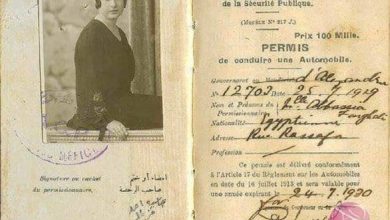 de la Sécurité Publique.
(Modèle Nº 217 J.)
Prix 100 Mills.
PERMIS
de conduire une Automobile.
Gouvernorat ou d'Alexandrie
Nº 12703 25.7.1929
Nom et Prénoms du Mlle Abbassia
Permissionnaire,
Nationalité Egyptienne
Adresse Rue Rassafa
Profession
Ce permis est délivré conformément
à l'Article 17 du Règlement sur les Automobiles
en date du 16 juillet 1913 et sera valable
pour une année expirant le 24.7.1930
Signature ou cachet
du permissionnaire,
امضاء أو ختم
صاحب الرخصة